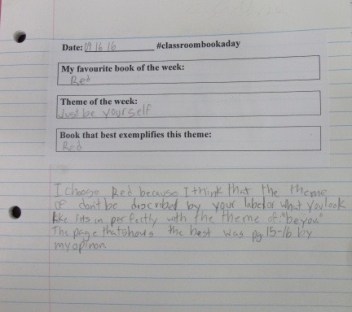 Date: 09 16 16 #classroombookaday
My favourite book of the week:
Red
Theme of the week:
Just be yourself
Book that best exemplifies this theme:
Red
I choose Red because I think that the theme
of don't be described by your label or what you look
like fits in perfectly with the theme of "be you"
The page that shows the best was pg 15-16 in
my opinon